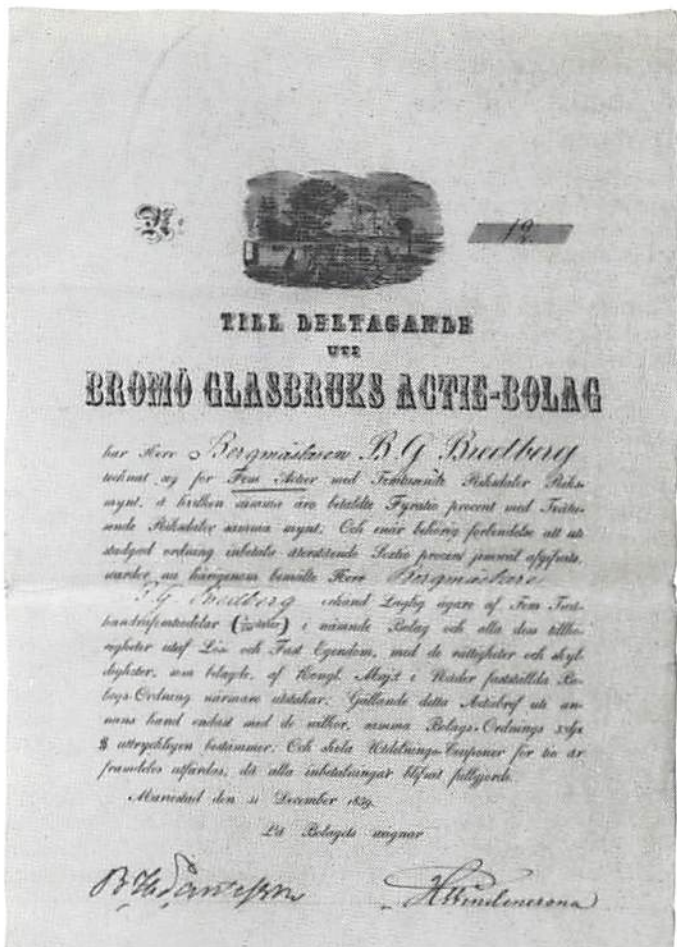 No. 12
TILL DELTAGANDE
UTI
BROMÖ GLASBRUKS ACTIE-BOLAG
har Herr Bergmästaren B. G. Bredberg
tecknat sig för Fem Actier med Riksdaler Riks-
mynt, å hvilken summa äro betaldte Fyratio procent med
Riksdaler samma mynt; Och enär behörig förbindelse att uti
stadgad ordning inbetala återstående Sextio procent jemväl afgifvits,
warder nu härigenom bemälte Herr Bergmästaren
B. G. Bredberg erkänd Laglig ägare af Fem
i nämnde Bolag och alla dess tillhö-
righeter utaf Lös och Fast Egendom, med de rättigheter och skyl-
digheter, som bolagets, af Kongl. Maj:t i Nåder fastställda Bo-
lags-Ordning närmare utstakar; Gällande detta Actiebref uti an-
nans hand endast med de wilkor, samma Bolags-Ordnings
§ uttryckligen bestämmer; Och skola Utdelnings-Couponer för tio år
framdeles utfärdas, då alla inbetalningar blifvit fullgjorde.
Mariestad den 31 December 1839.
På Bolagets wägnar